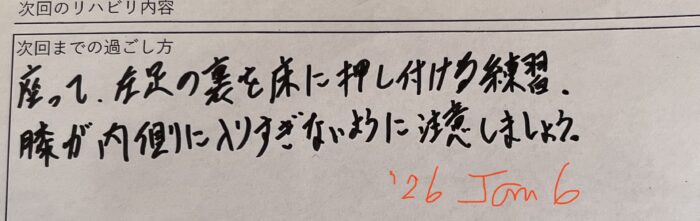 次回のリハビリ内容
次回までの過ごし方
座って、左足の裏を床に押し付ける練習.
膝が内側に入りすぎないように注意しましょう。
'26 Jan 6